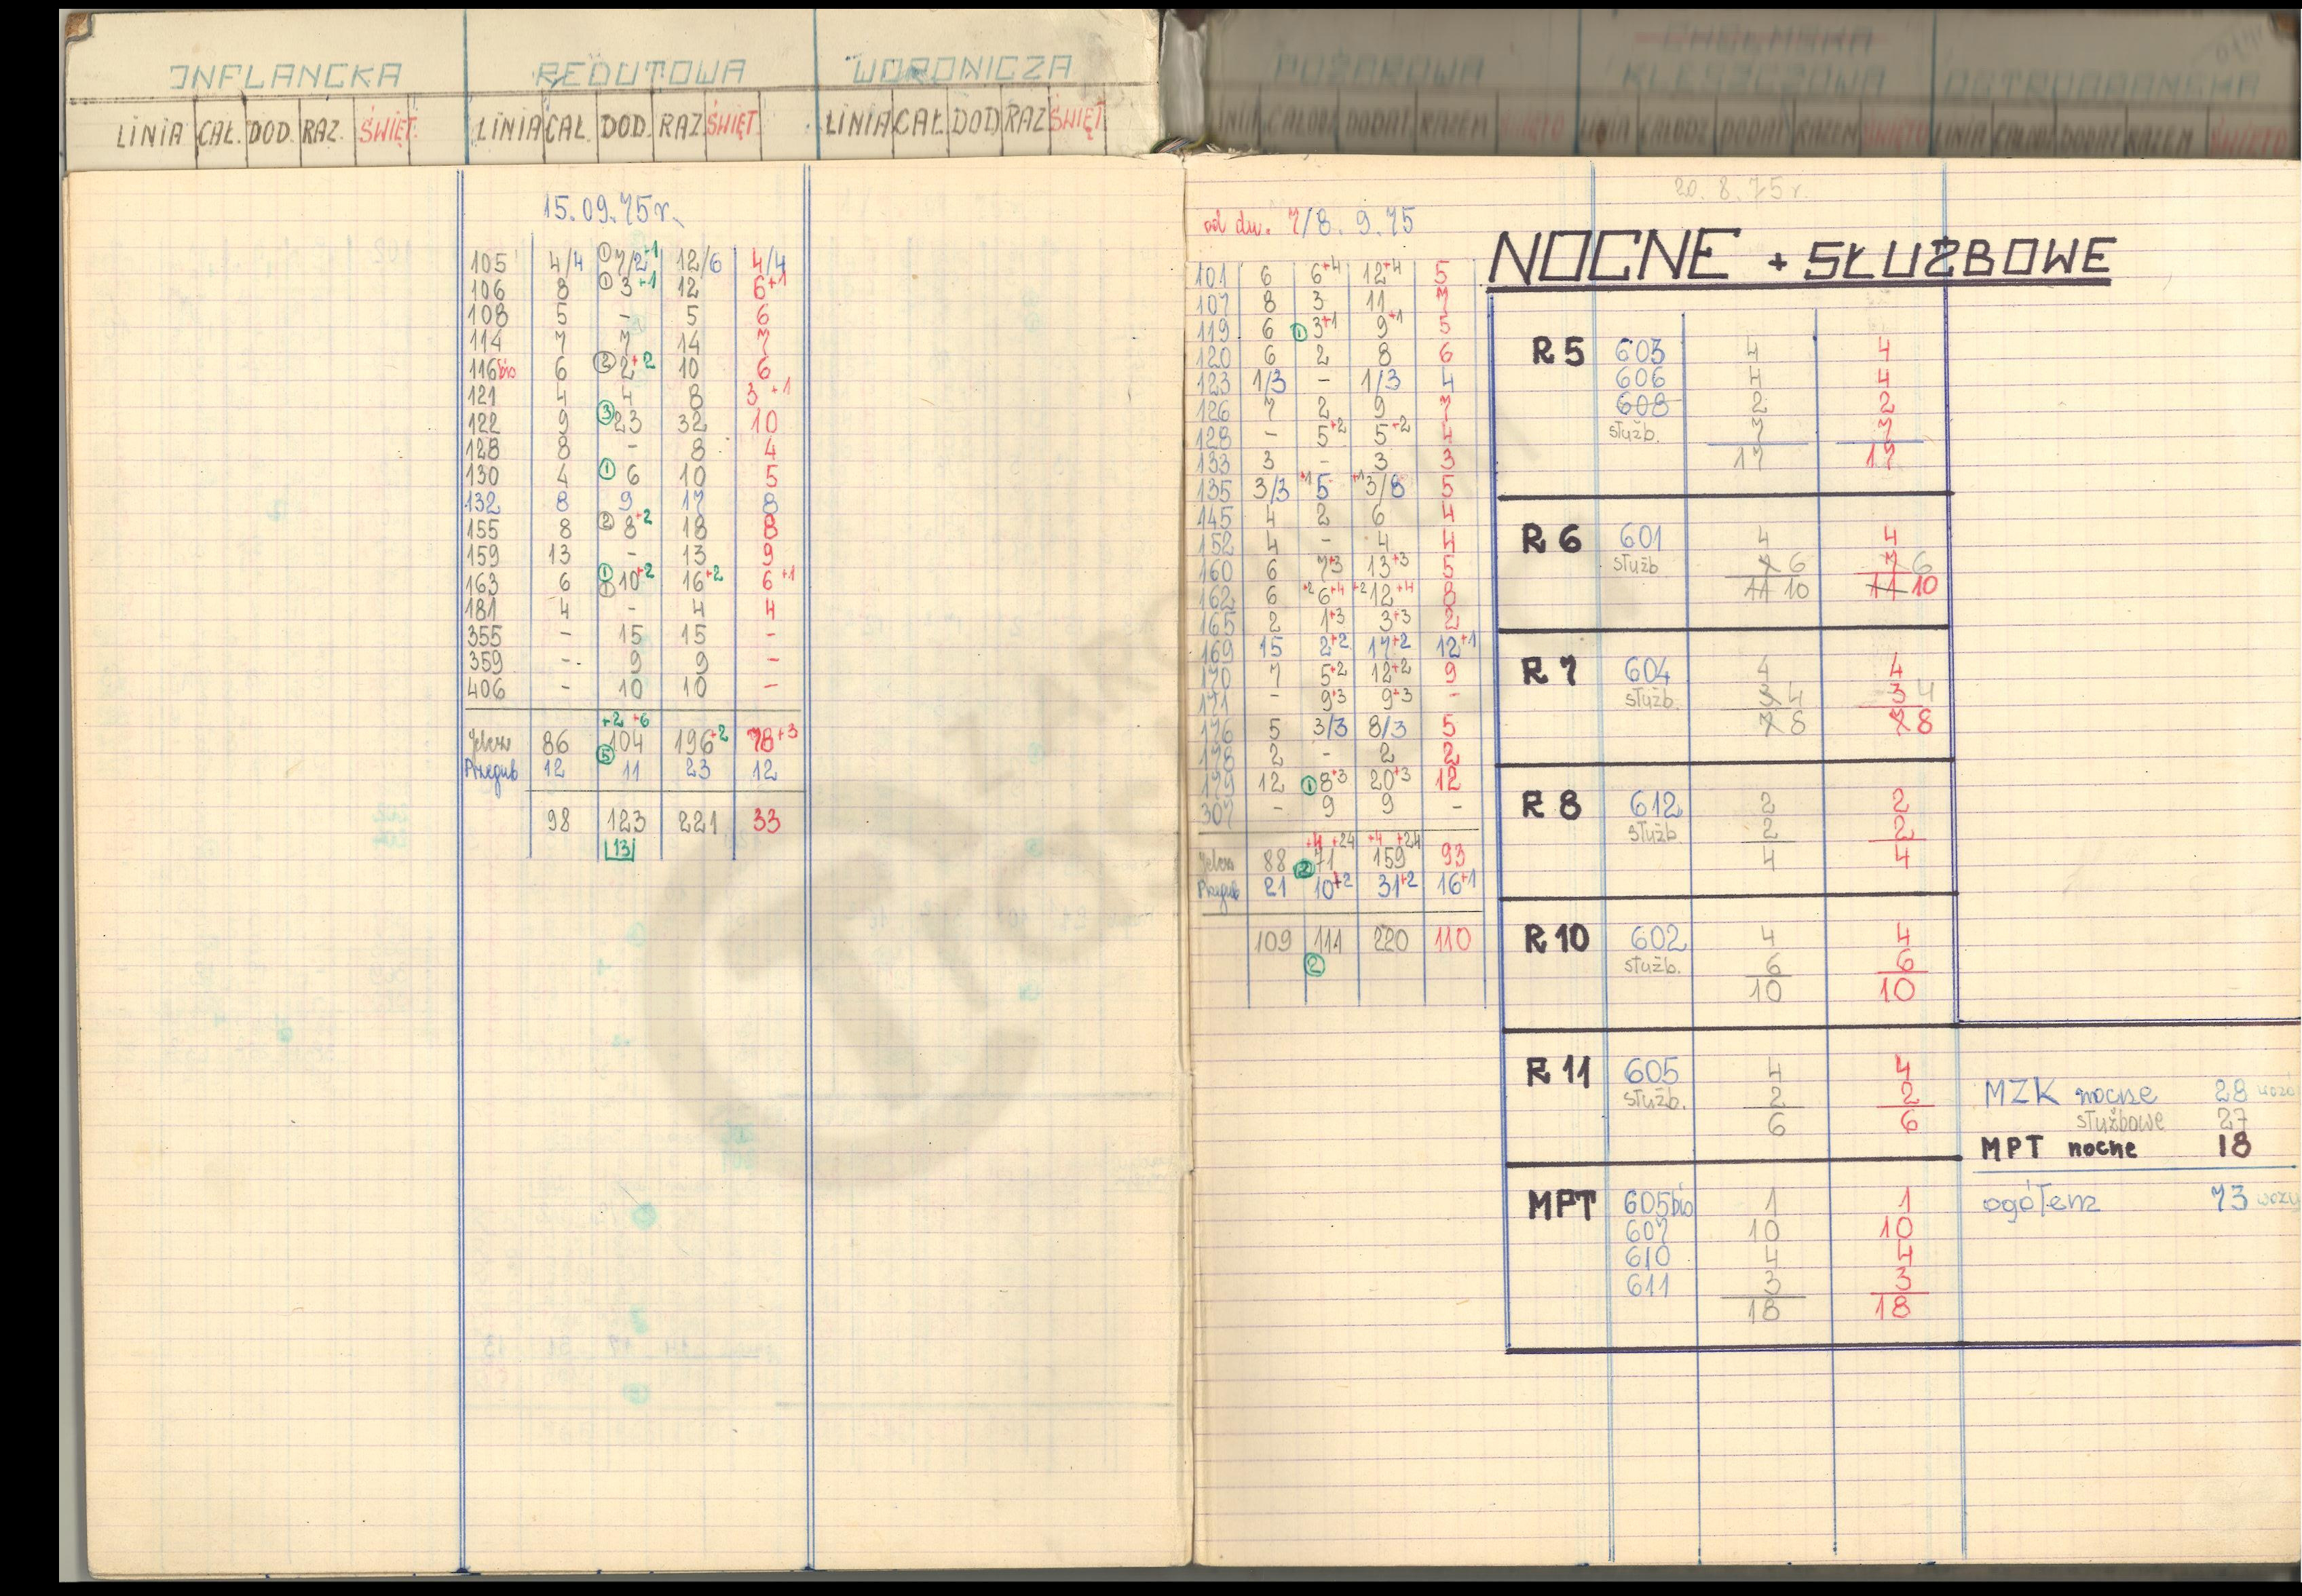 INFLANCKA REDUTOWA WORONICZA
LINIA CAŁ. DOD. RAZ. ŚWIĘT. LINIA CAŁ. DOD. RAZ ŚWIĘT. LINIA CAŁ. DOD RAZ ŚWIĘT
POŻAROWA CHEŁMSKA KLESZCZOWA OSTROBRAMSKA
LINIA CAŁODZ DODAT RAZEM ŚWIĘTO LINIA CAŁODZ DODAT RAZEM ŚWIĘTO LINIA CAŁODZ DODAT RAZEM ŚWIĘTO
15.09.75r.
105 4/4 ① 7/2+1 12/6 4/4
106 8 ① 3+1 12 6+1
108 5 - 5 6
114 7 7 14 7
116bis 6 ② 2+2 10 6
121 4 4 8 3+1
122 9 ③ 23 32 10
128 8 - 8 4
130 4 ① 6 10 5
132 8 9 17 8
155 8 ② 8+2 18 8
159 13 - 13 9
163 6 ① ① 10+2 16+2 6+1
181 4 - 4 4
355 - 15 15 -
359 - 9 9 -
406 - 10 10 -
+2 +6
Jelcze 86 ⑤ 104 196+2 78+3
Przegub 12 11 23 12
98 123 221 33
13
od dn. 7/8. 9. 75
101 6 6+4 12+4 5
107 8 3 11 7
119 6 ① 3+1 9+1 5
120 6 2 8 6
123 1/3 - 1/3 4
126 7 2 9 7
128 - 5+2 5+2 4
133 3 - 3 3
135 3/3 +1 5 +1 3/8 5
145 4 2 6 4
152 4 - 4 4
160 6 7+3 13+3 5
162 6 +2 6+4 +2 12+4 8
165 2 1+3 3+3 2
169 15 2+2 17+2 12+1
170 7 5+2 12+2 9
171 - 9+3 9+3 -
176 5 3/3 8/3 5
178 2 - 2 2
179 12 ① 8+3 20+3 12
307 - 9 9 -
+4 +24 +4 +24
Jelcze 88 ② 71 159 93
Przegub 21 10+2 31+2 16+1
109 111 220 110
②
20. 8. 75 r.
NOCNE + SŁUŻBOWE
R 5 603 4 4
606 4 4
608 2 2
służb. 7 7
17 17
R 6 601 4 4
służb 7 6 7 6
11 10 11 10
R 7 604 4 4
służb. 3 4 3 4
7 8 7 8
R 8 612 2 2
służb. 2 2
4 4
R 10 602 4 4
służb. 6 6
10 10
R 11 605 4 4
służb. 2 2
6 6
MPT 605bis 1 1
607 10 10
610 4 4
611 3 3
18 18
MZK nocne 28
służbowe 27
MPT nocne 18
ogółem 73 wozy